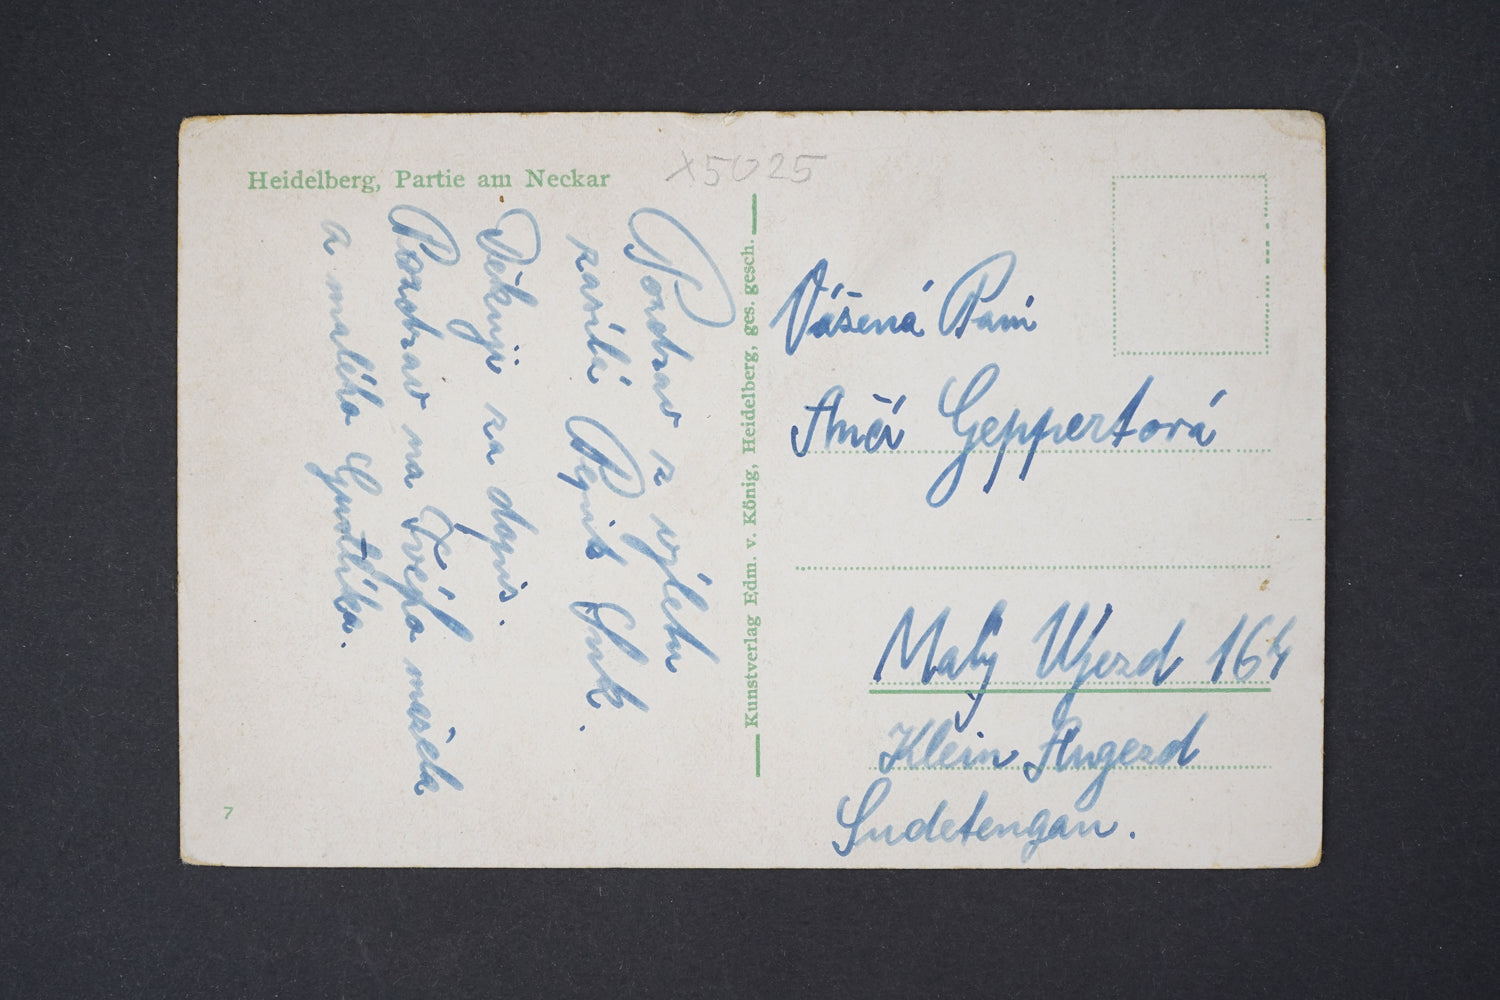 Heidelberg, Partie am Neckar
x5025
Pozdrav z výletu
zasílá Pepik
Děkuji za dopis.
Pozdrav na
a malého Gustíka.
Kunstverlag Edm. v. König, Heidelberg, ges. gesch.
Vášená Paní
Anči Geppertová
Malý Ujezd 164
Klein Augezd
Sudetengau.
7